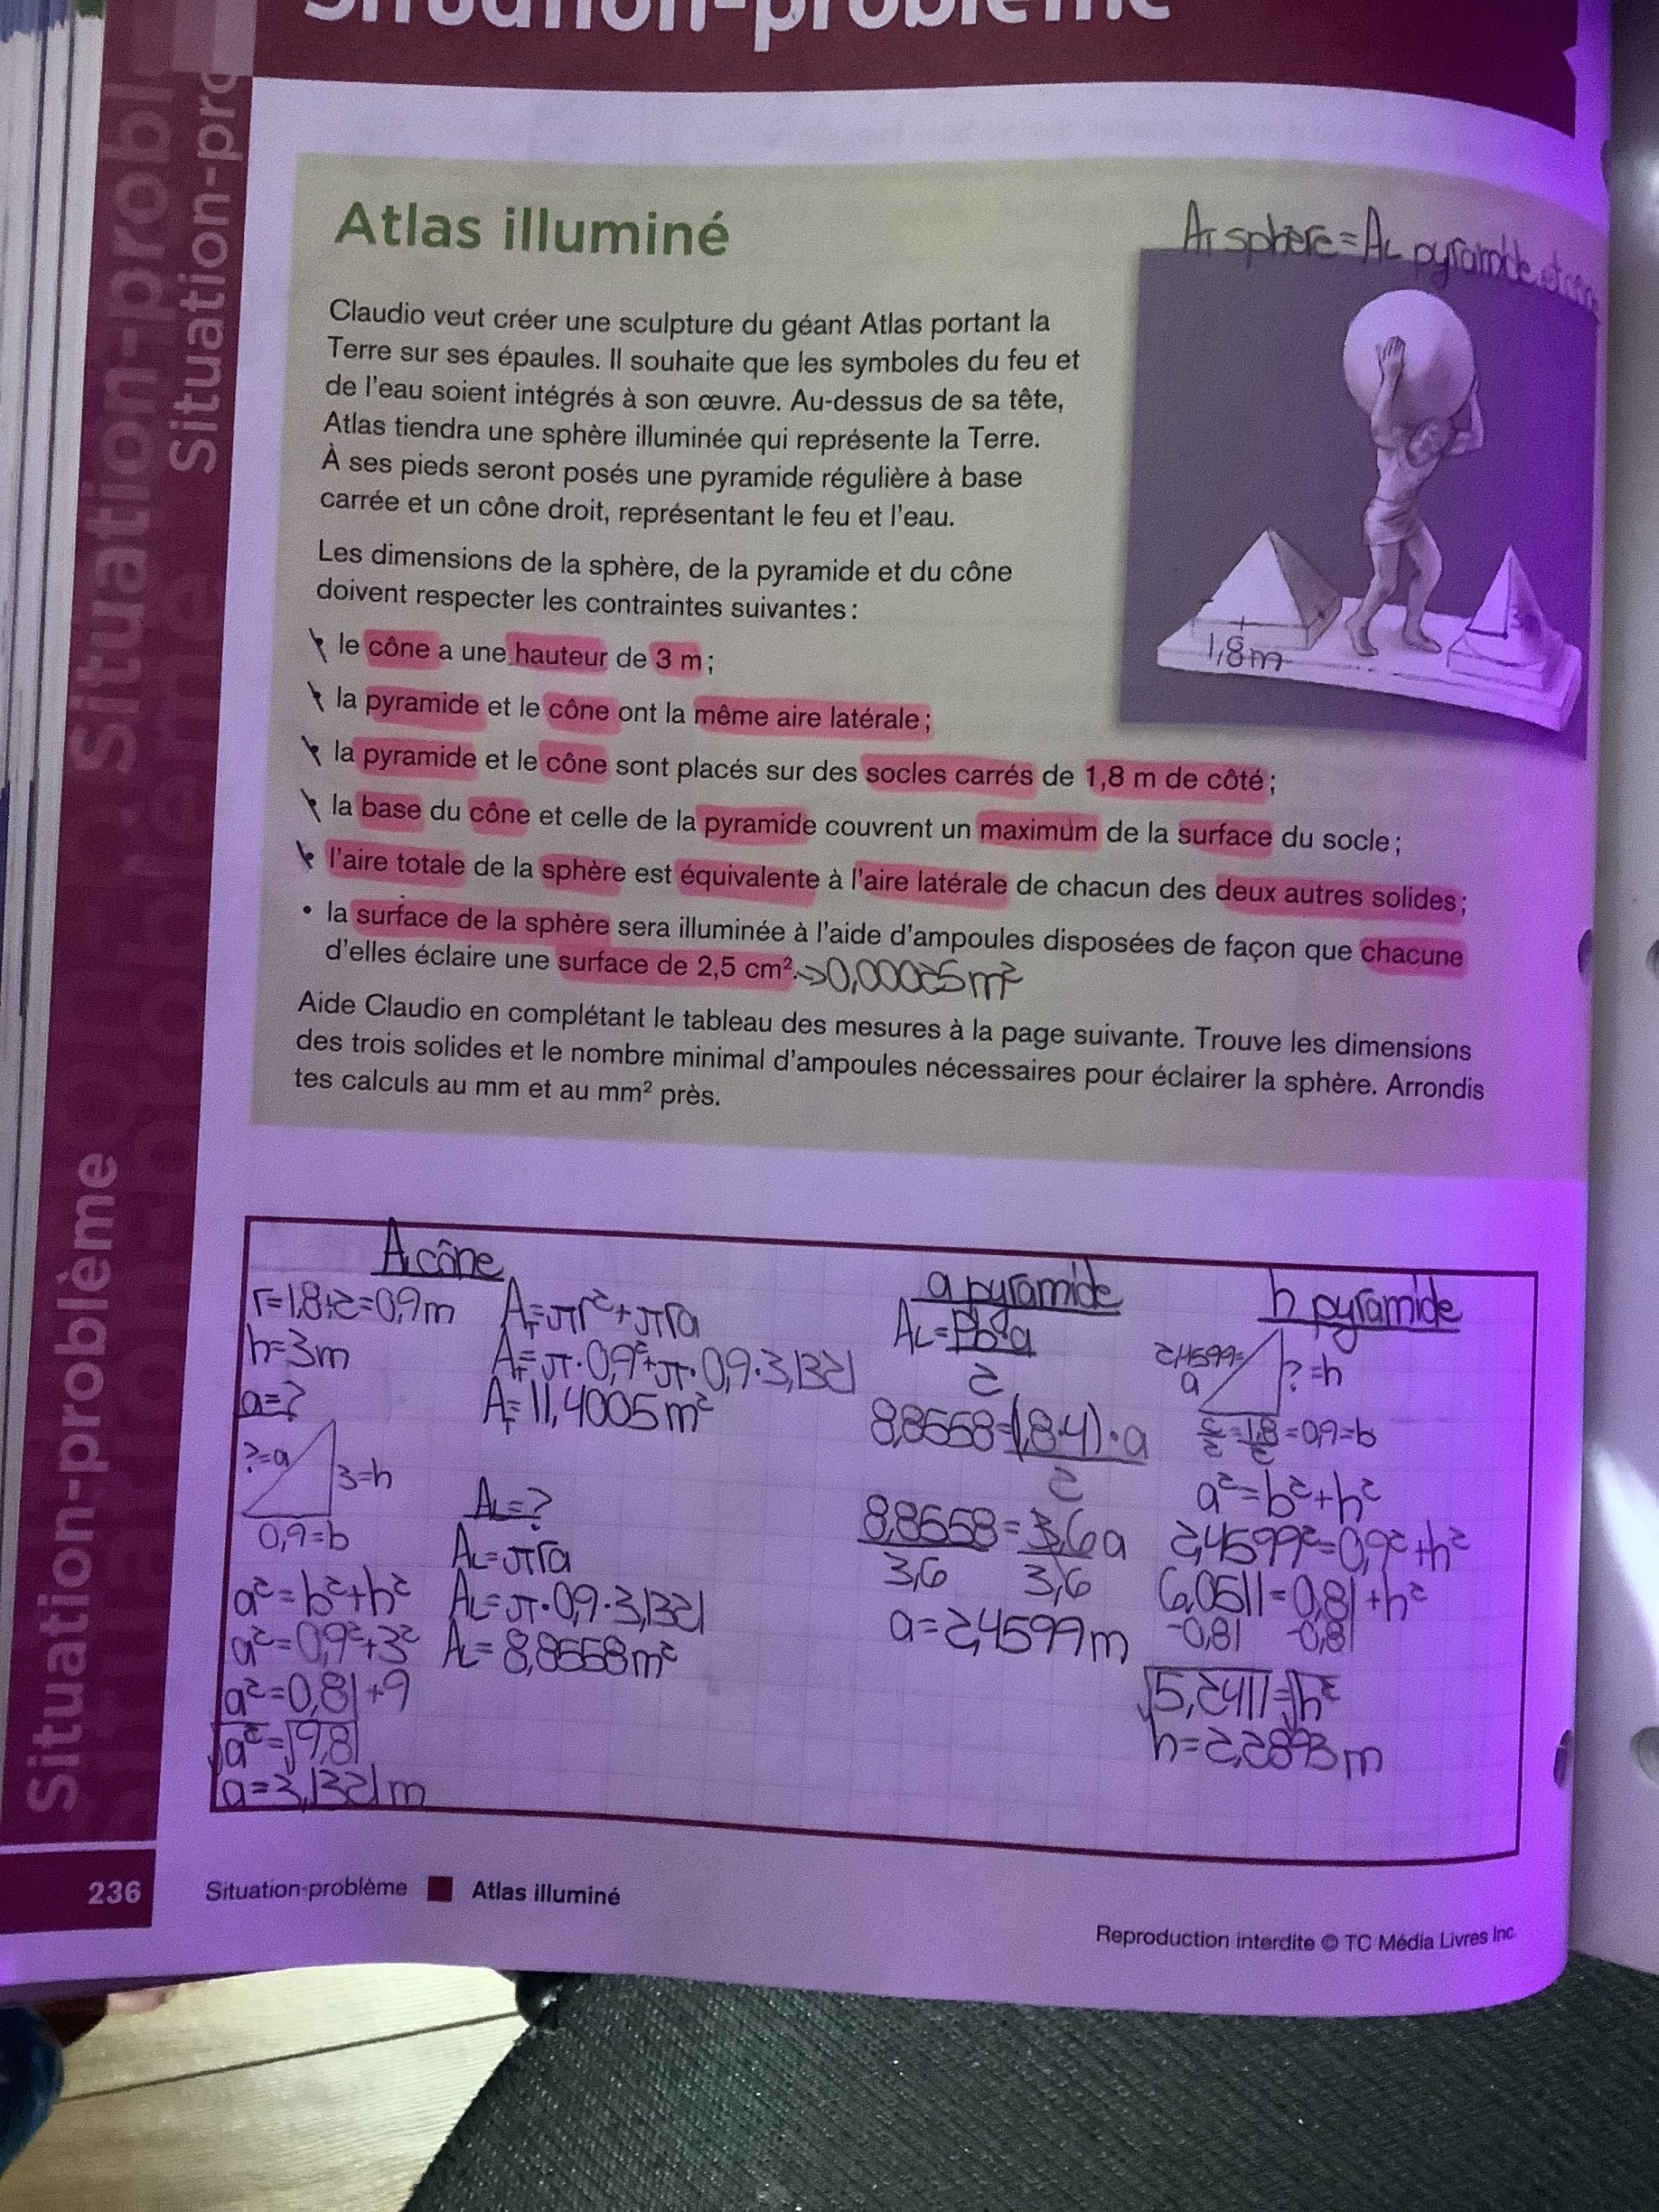 Situation-problème
Situation-probl
Situation-pro
Situation-problème
Atlas illuminé
A_T sphère = A_L pyramide
Claudio veut créer une sculpture du géant Atlas portant la
Terre sur ses épaules. Il souhaite que les symboles du feu et
de l'eau soient intégrés à son œuvre. Au-dessus de sa tête,
Atlas tiendra une sphère illuminée qui représente la Terre.
À ses pieds seront posés une pyramide régulière à base
carrée et un cône droit, représentant le feu et l'eau.
1,8m
Les dimensions de la sphère, de la pyramide et du cône
doivent respecter les contraintes suivantes :
le cône a une hauteur de 3 m ;
la pyramide et le cône ont la même aire latérale ;
la pyramide et le cône sont placés sur des socles carrés de 1,8 m de côté ;
la base du cône et celle de la pyramide couvrent un maximum de la surface du socle ;
l'aire totale de la sphère est équivalente à l'aire latérale de chacun des deux autres solides ;
• la surface de la sphère sera illuminée à l'aide d'ampoules disposées de façon que chacune
d'elles éclaire une surface de 2,5 cm². → 0,00025 m²
Aide Claudio en complétant le tableau des mesures à la page suivante. Trouve les dimensions
des trois solides et le nombre minimal d'ampoules nécessaires pour éclairer la sphère. Arrondis
tes calculs au mm et au mm² près.
A cône
r=1,8÷2=0,9m
h=3m
a=?
?=a
3=h
0,9=b
a²=b²+h²
a²=0,9²+3²
a²=0,81+9
√a²=√9,81
a=3,1321m
A_T=πr²+πra
A_T=π·0,9²+π·0,9·3,1321
A_T=11,4005m²
A_L=?
A_L=πra
A_L=π·0,9·3,1321
A_L=8,8558m²
a pyramide
A_L=Pb·a
2
8,8558=(1,8·4)·a
2
8,8558=3,6a
3,6 3,6
a=2,4599m
h pyramide
2,4599=
a
?=h
c/2=1,8/2=0,9=b
a²=b²+h²
2,4599²=0,9²+h²
6,0511=0,81+h²
-0,81 -0,81
√5,2411=√h²
h=2,2893m
236
Situation-problème Atlas illuminé
Reproduction interdite © TC Média Livres Inc.